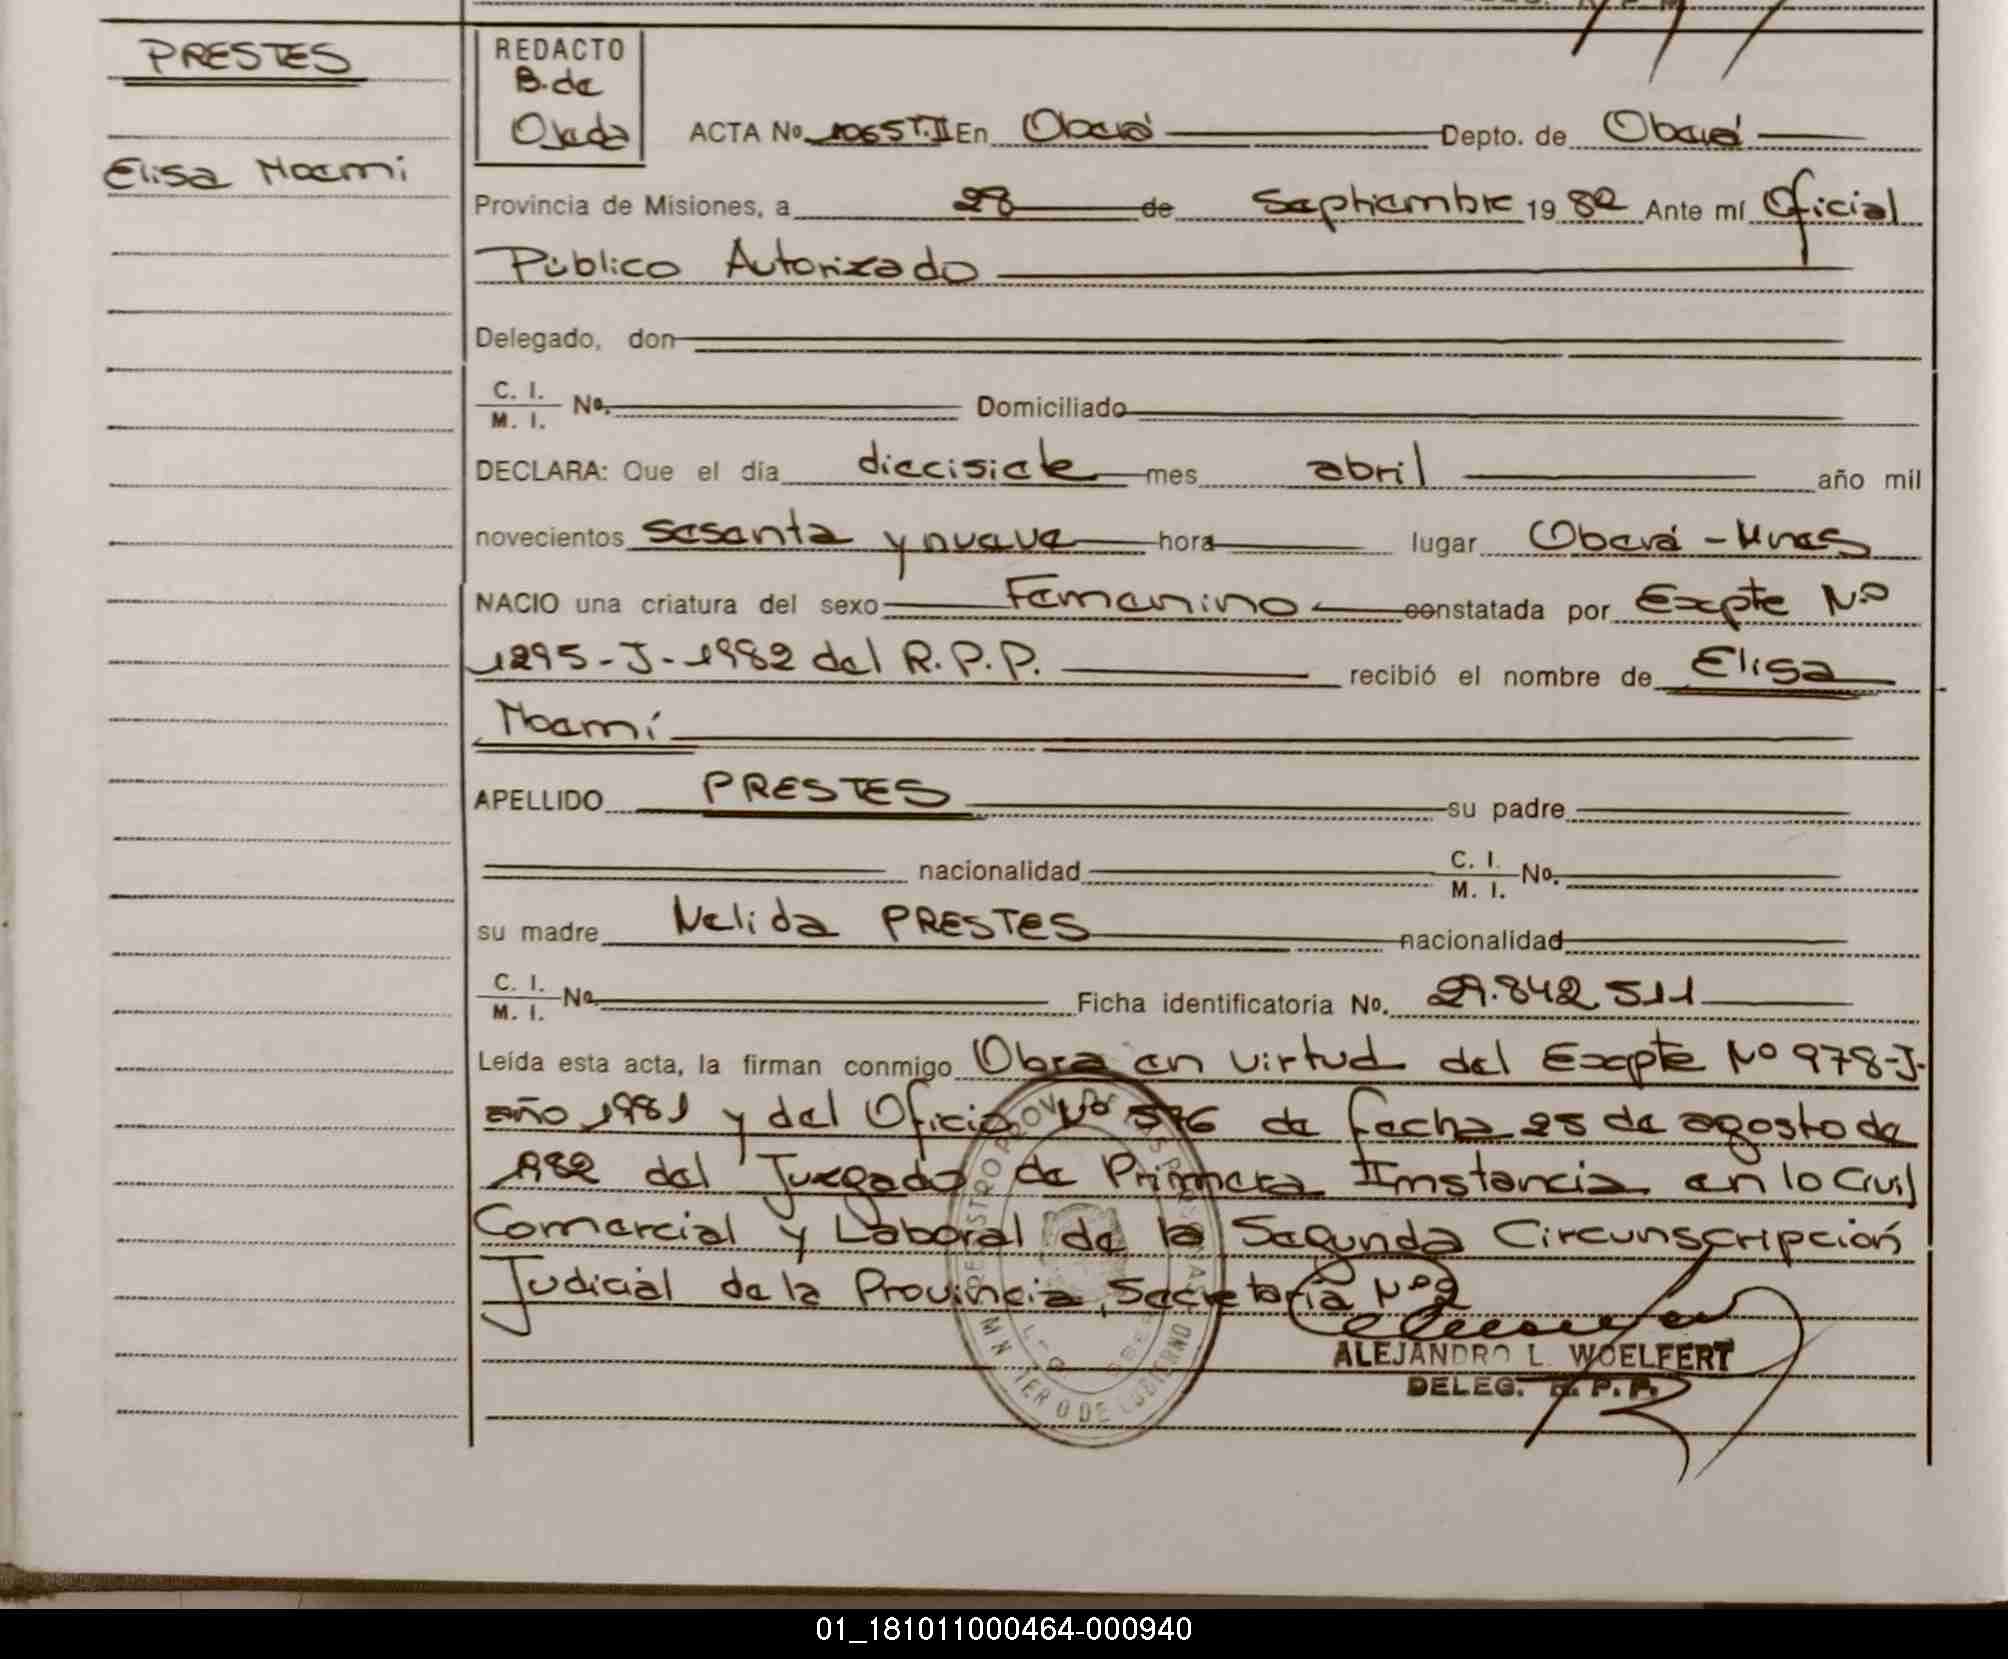 PRESTES
Elisa Noemi
REDACTO
B. de
Ojeda
ACTA No 1065 T.II En Oberá Depto. de Oberá
Provincia de Misiones, a 28 de Septiembre 1982 Ante mí Oficial
Público Autorizado
Delegado, don
C. I.
M. I. No. Domiciliado
DECLARA: Que el día diecisiete mes abril año mil
novecientos sesenta y nueve hora lugar Oberá - Mnes
NACIO una criatura del sexo Femenino constatada por Expte No
1295-J-1982 del R.P.P. recibió el nombre de Elisa
Noemí
APELLIDO PRESTES su padre
nacionalidad C. I.
M. I. No.
su madre Nelida PRESTES nacionalidad
C. I.
M. I. No. Ficha identificatoria No. 29.842.511
Leída esta acta, la firman conmigo Obra en virtud del Expte No 978-J-
año 1981 y del Oficio No 576 de fecha 25 de agosto de
1982 del Juzgado de Primera Instancia en lo Civil
Comercial y Laboral de la Segunda Circunscripción
Judicial de la Provincia, Secretaria No 2
ALEJANDRO L. WOELFERT
DELEG. R. P. P.
01_181011000464-000940